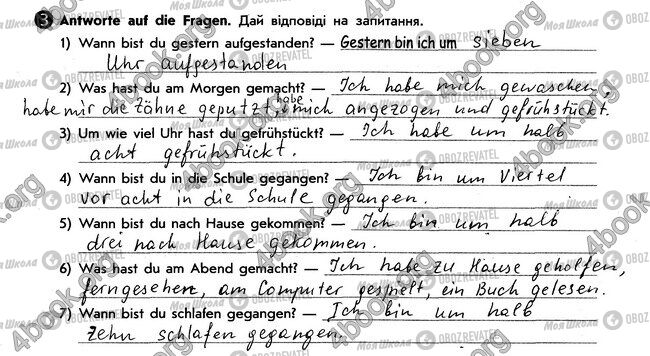 3 Antworte auf die Fragen. Дай відповіді на запитання.
1) Wann bist du gestern aufgestanden? — Gestern bin ich um sieben
Uhr aufgestanden
2) Was hast du am Morgen gemacht? — Ich habe mich gewaschen,
habe mir die Zähne geputzt, habe mich angezogen und gefrühstückt.
3) Um wie viel Uhr hast du gefrühstückt? — Ich habe um halb
acht gefrühstückt.
4) Wann bist du in die Schule gegangen? — Ich bin um Viertel
vor acht in die Schule gegangen.
5) Wann bist du nach Hause gekommen? — Ich bin um halb
drei nach Hause gekommen.
6) Was hast du am Abend gemacht? — Ich habe zu Hause geholfen,
ferngesehen, am Computer gespielt, ein Buch gelesen.
7) Wann bist du schlafen gegangen? — Ich bin um halb
zehn schlafen gegangen.